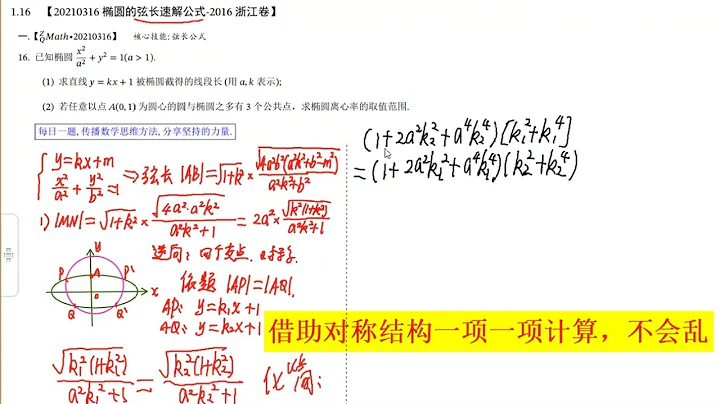 1.16 【20210316 椭圆的弦长速解公式-2016 浙江卷】
一.【QMath•20210316】 核心技能: 弦长公式
16. 已知椭圆 x²/a² + y² = 1(a > 1).
(1) 求直线 y = kx + 1 被椭圆截得的线段长 (用 a, k 表示);
(2) 若任意以点 A(0,1) 为圆心的圆与椭圆之多有 3 个公共点，求椭圆离心率的取值范围.
每日一题, 传播数学思维方法, 分享坚持的力量.
{ y=kx+m
x²/a² + y²/b² =1
⇒ 弦长 |AB|=√(1+k²) × √(4a²b²(a²k²+b²-m²))/(a²k²+b²)
1) |MN|=√(1+k²) × √(4a²·a²k²)/(a²k²+1) = 2a² × √(k²(1+k²))/(a²k²+1)
逆向: 四个交点.
依题 |AP|=|AQ|.
AP: y=k₁x+1
AQ: y=k₂x+1
y
P A P'
o x
Q Q'
√(k₁²(1+k₁²))/(a²k₁²+1) = √(k₂²(1+k₂²))/(a²k₂²+1) 化简:
(1+2a²k₂²+a⁴k₂⁴)[k₁²+k₁⁴]
=(1+2a²k₁²+a⁴k₁⁴)(k₂²+k₂⁴)
借助对称结构一项一项计算，不会乱